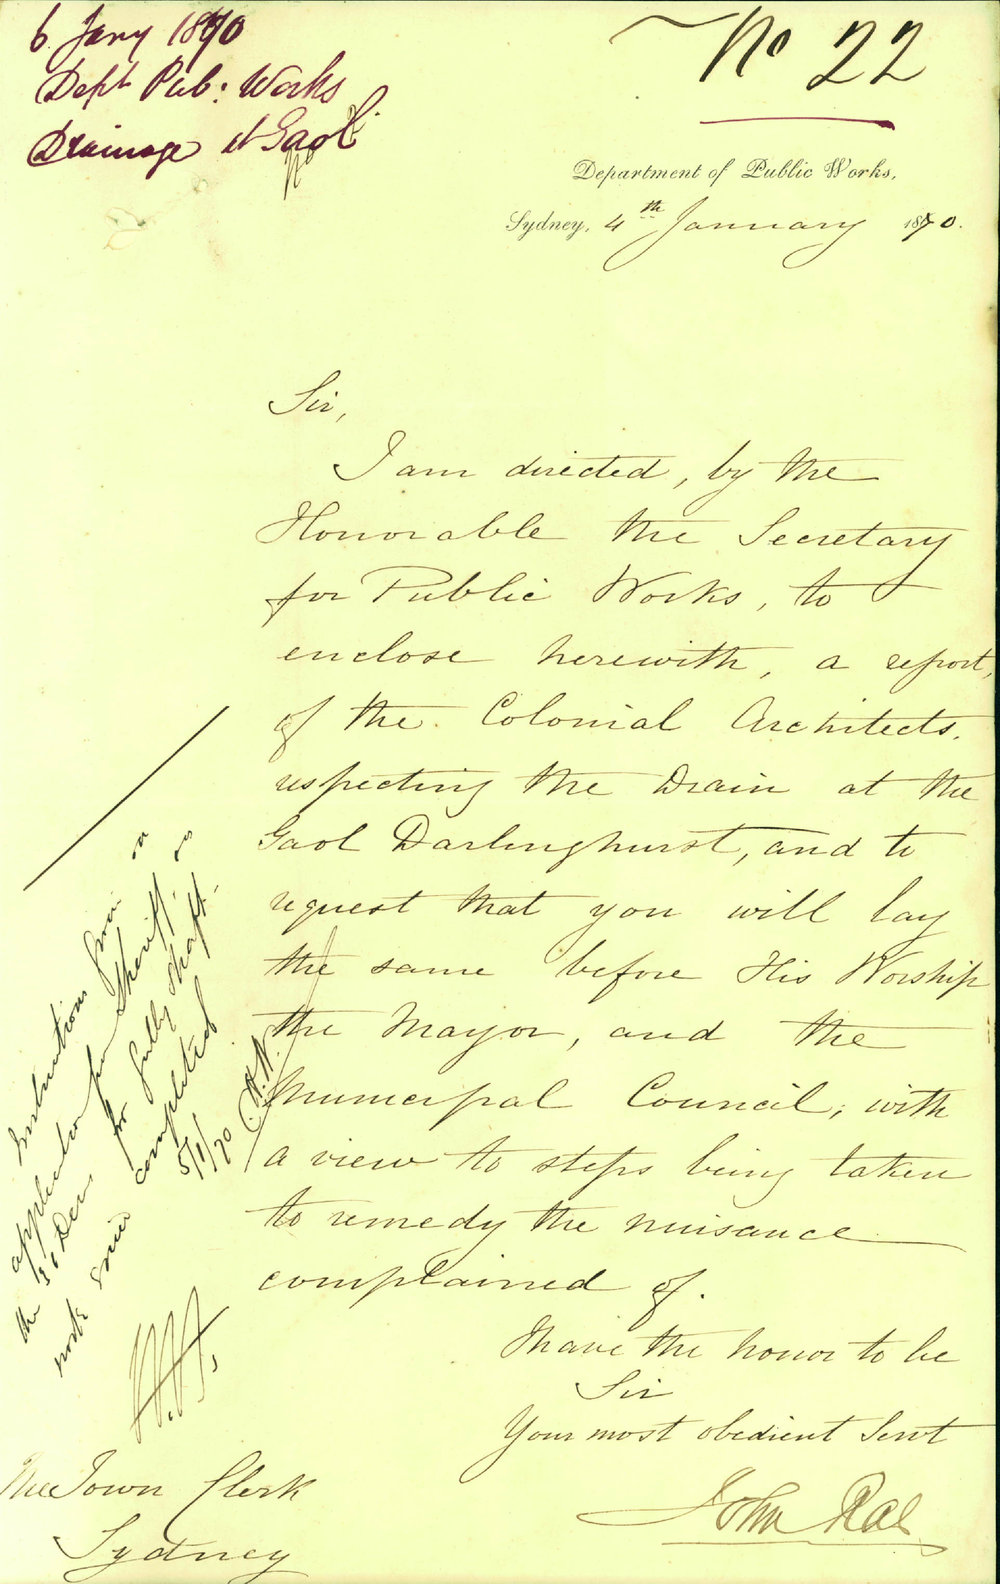 6 Jany 1870
Dept Pub: Works
Drainage at Gaol
No 22
Department of Public Works,
Sydney, 4th January 1870.
Sir,
I am directed, by the
Honorable the Secretary
for Public Works, to
enclose herewith, a report,
of the Colonial Architects,
respecting the Drain at the
Gaol Darlinghurst, and to
request that you will lay
the same before His Worship
the Mayor, and the
Municipal Council, with
a view to steps being taken
to remedy the nuisance
complained of.
I have the honor to be
Sir
Your most obedient Servt
John Rae
The Town Clerk
Sydney
Instructions given on
the Sheriff
for gully shaft
work since completed
5/1/70